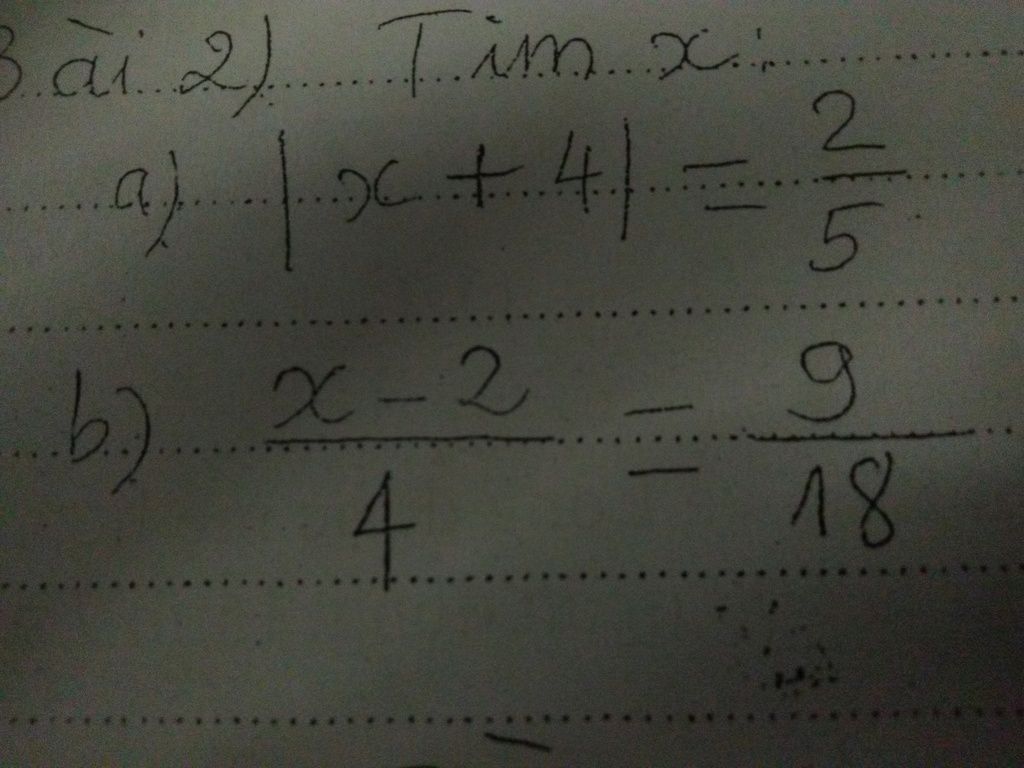 Bài 2) Tìm x:
a) |x + 4| = 2/5
b) x - 2/4 = 9/18